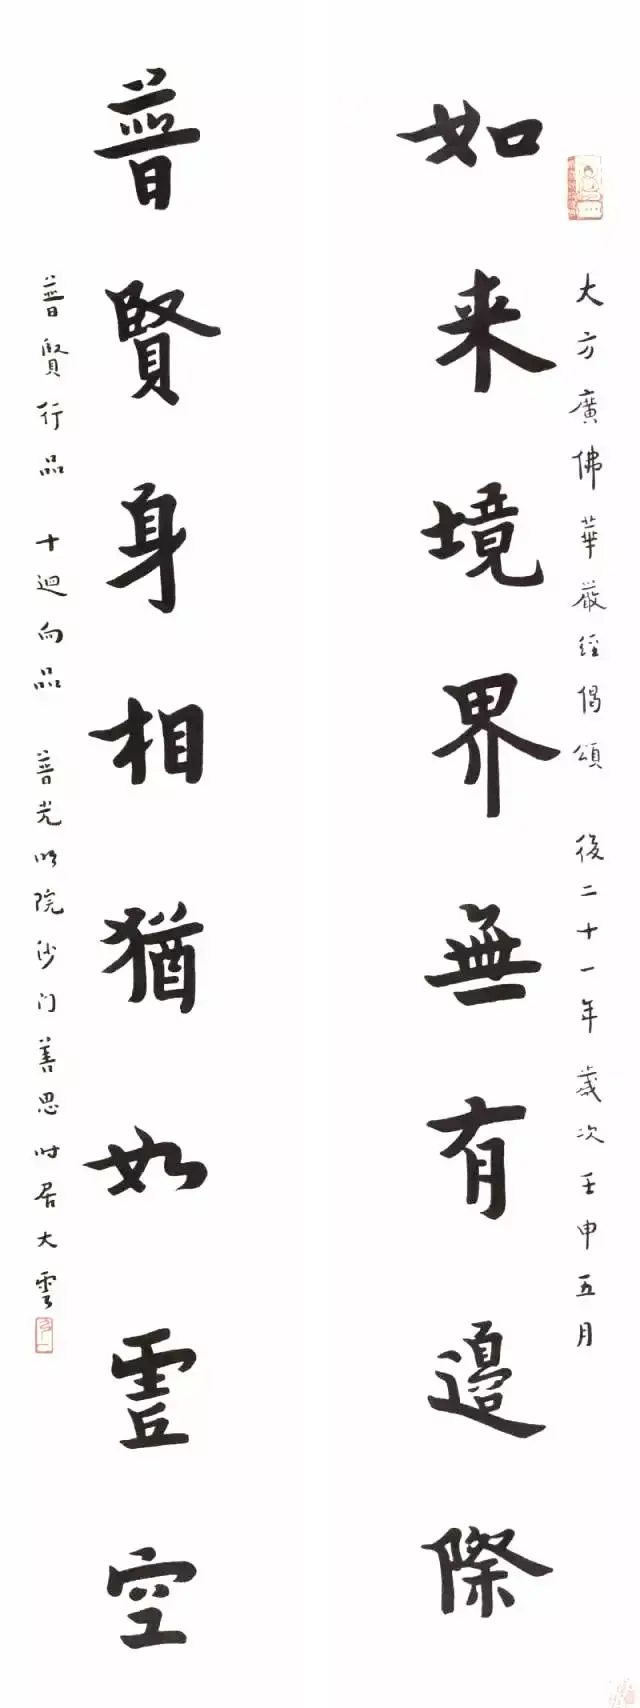 如来境界無有邊際
大方廣佛華嚴經偈頌 後二十一年歲次壬申五月
普賢身相猶如虚空
普賢行品 十迴向品 普光明院沙门善思时居大雲